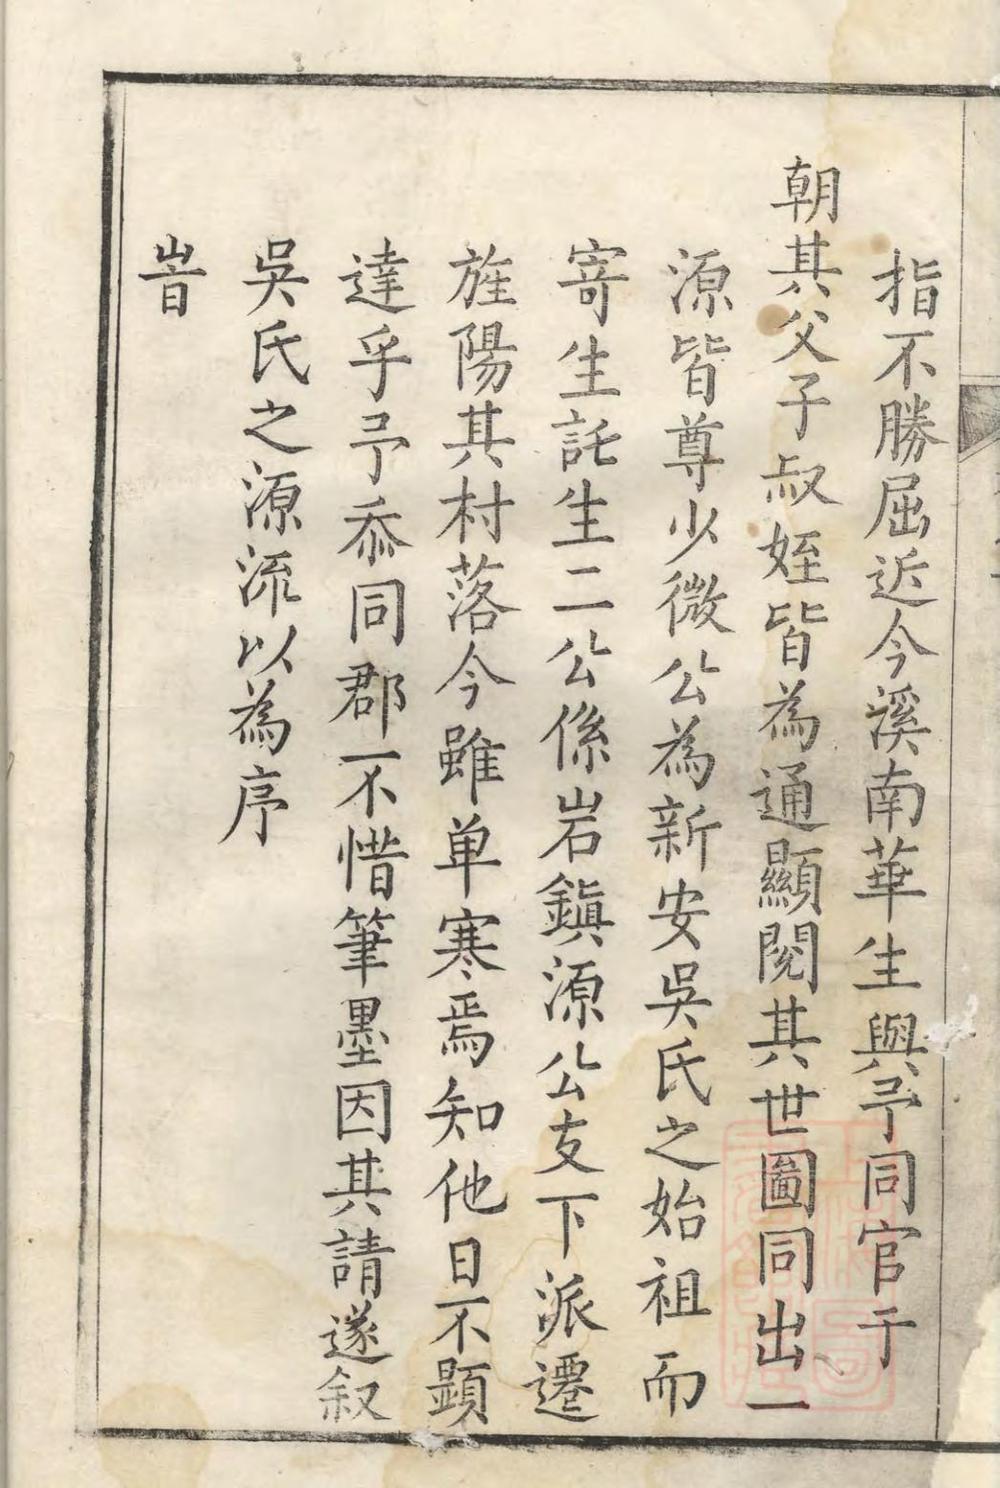 指不勝屈近今溪南華生與予同官于
朝其父子叔姪皆為通顯閱其世圖同出一
源皆尊少微公為新安吳氏之始祖而
寄生託生二公係岩鎮源公支下派遷
旌陽其村落今雖单寒焉知他日不顕
達乎予忝同郡不惜筆墨因其請遂叙
吳氏之源流以為序
旹